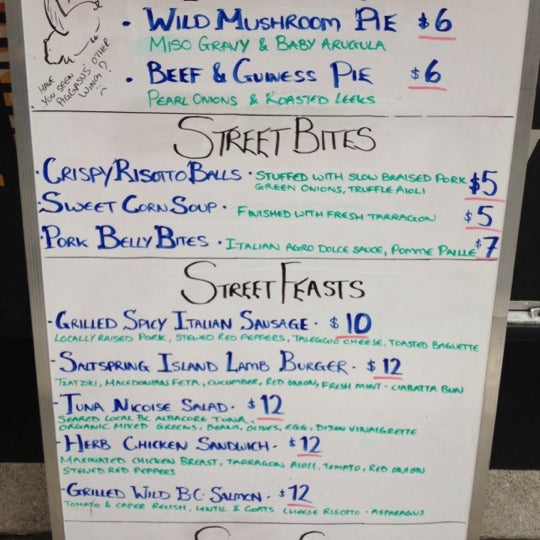 • WILD MUSHROOM PIE $6
MISO GRAVY & BABY ARUGULA
HAVE
YOU SEEN
PIGGASUS' OTHER
WING?
• BEEF & GUINESS PIE $6
PEARL ONIONS & ROASTED LEEKS
STREET BITES
• CRISPY RISOTTO BALLS • STUFFED WITH SLOW BRAISED PORK $5
GREEN ONIONS, TRUFFLE AIOLI
• SWEET CORN SOUP • FINISHED WITH FRESH TARRAGON $5
• PORK BELLY BITES • ITALIAN AGRO DOLCE SAUCE, POMME PAILLE $7
STREET FEASTS
- GRILLED SPICY ITALIAN SAUSAGE • $10
LOCALLY RAISED PORK, STEWED RED PEPPERS, TALEGGIO CHEESE, TOASTED BAGUETTE
- SALTSPRING ISLAND LAMB BURGER • $12
TZATZIKI, MACEDONIAN FETA, CUCUMBER, RED ONION, FRESH MINT - CIABATTA BUN
- TUNA NICOISE SALAD • $12
SEARED LOCAL BC ALBACORE TUNA,
ORGANIC MIXED GREENS, BEANS, OLIVES, EGG, DIJON VINAIGRETTE
- HERB CHICKEN SANDWICH • $12
MARINATED CHICKEN BREAST, TARRAGON AIOLI, TOMATO, RED ONION
STEWED RED PEPPERS
- GRILLED WILD BC SALMON • $12
TOMATO & CAPER RELISH, LENTIL & GOATS CHEESE RISOTTO • ASPARAGUS